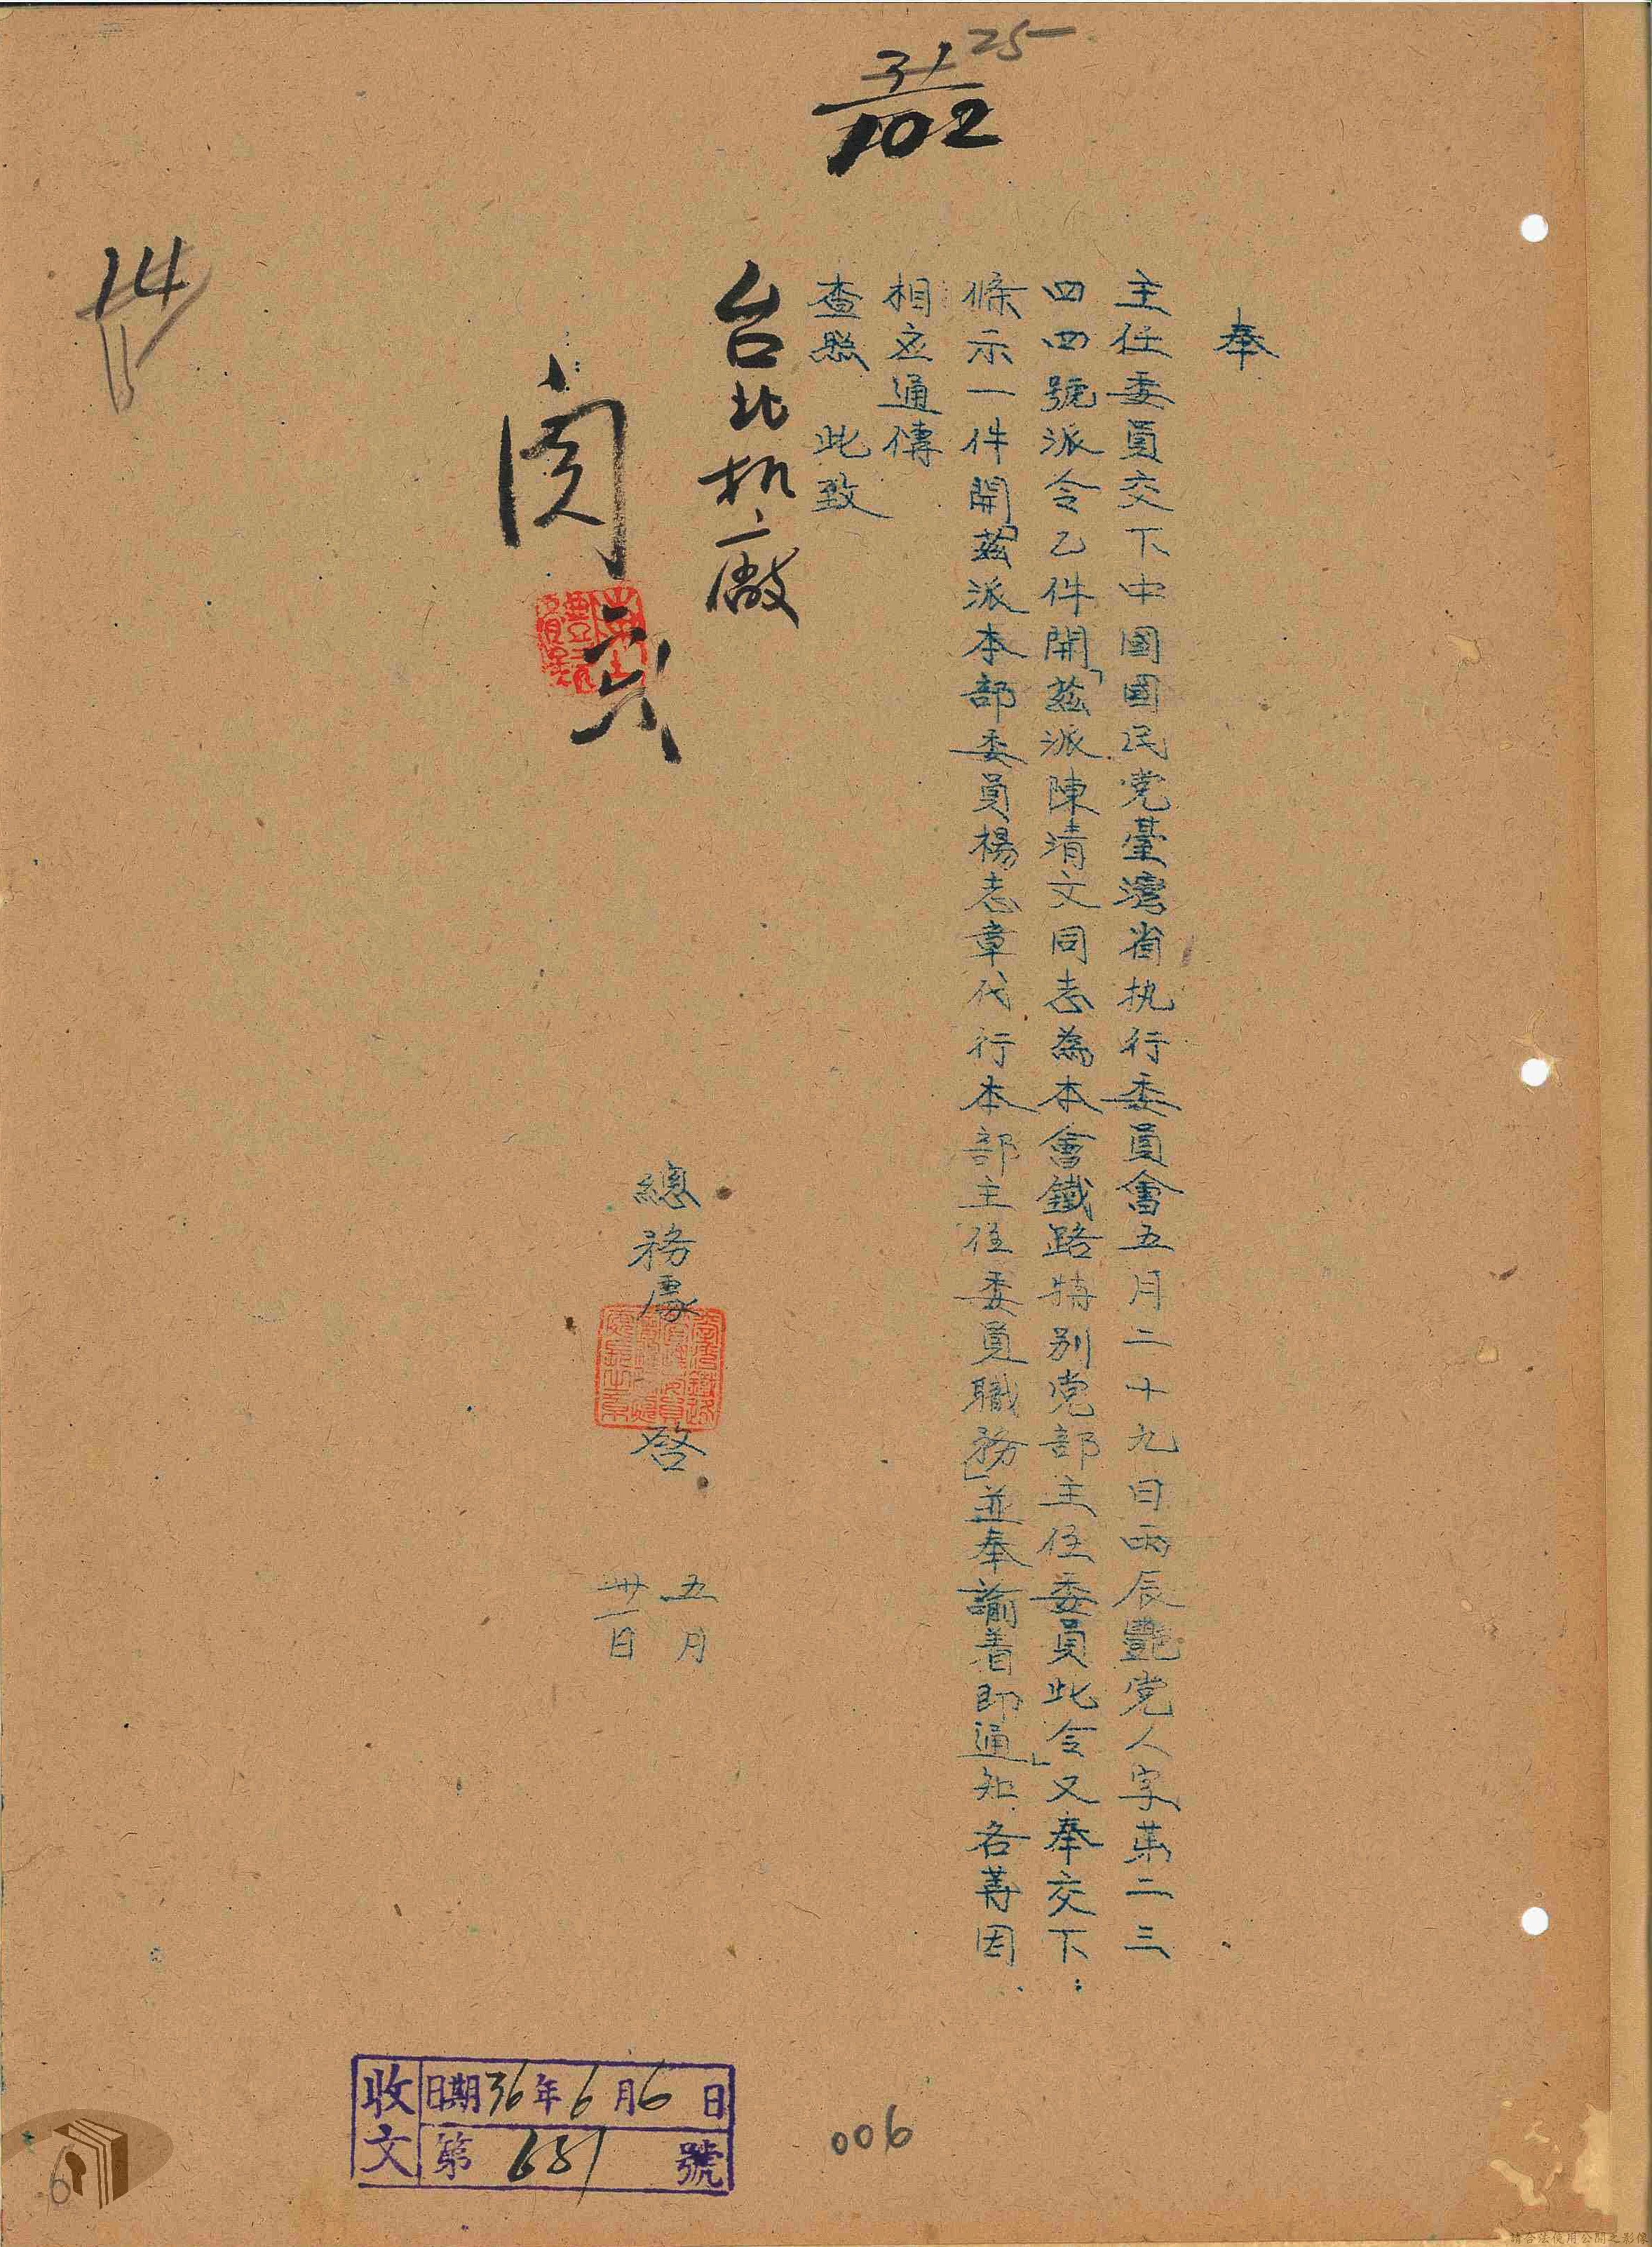 25
31
102
奉
主任委員交下中國國民党臺灣省执行委員會五月二十九日兩辰豔党人字苐二三
四四號派令乙件開「茲派陳清文同志為本會鐵路特别党部主任委員此令」又奉交下:
條示一件開「茲派本部委員楊志章代行本部主任委員職務」並奉諭着即通知各等因
相应通傳
查照 此致
台北机厰
閱
六
14
總務處 啓
五月
卅一日
收文
日期36年6月6日
第 681 號
006
6
請合法使用公開之影像